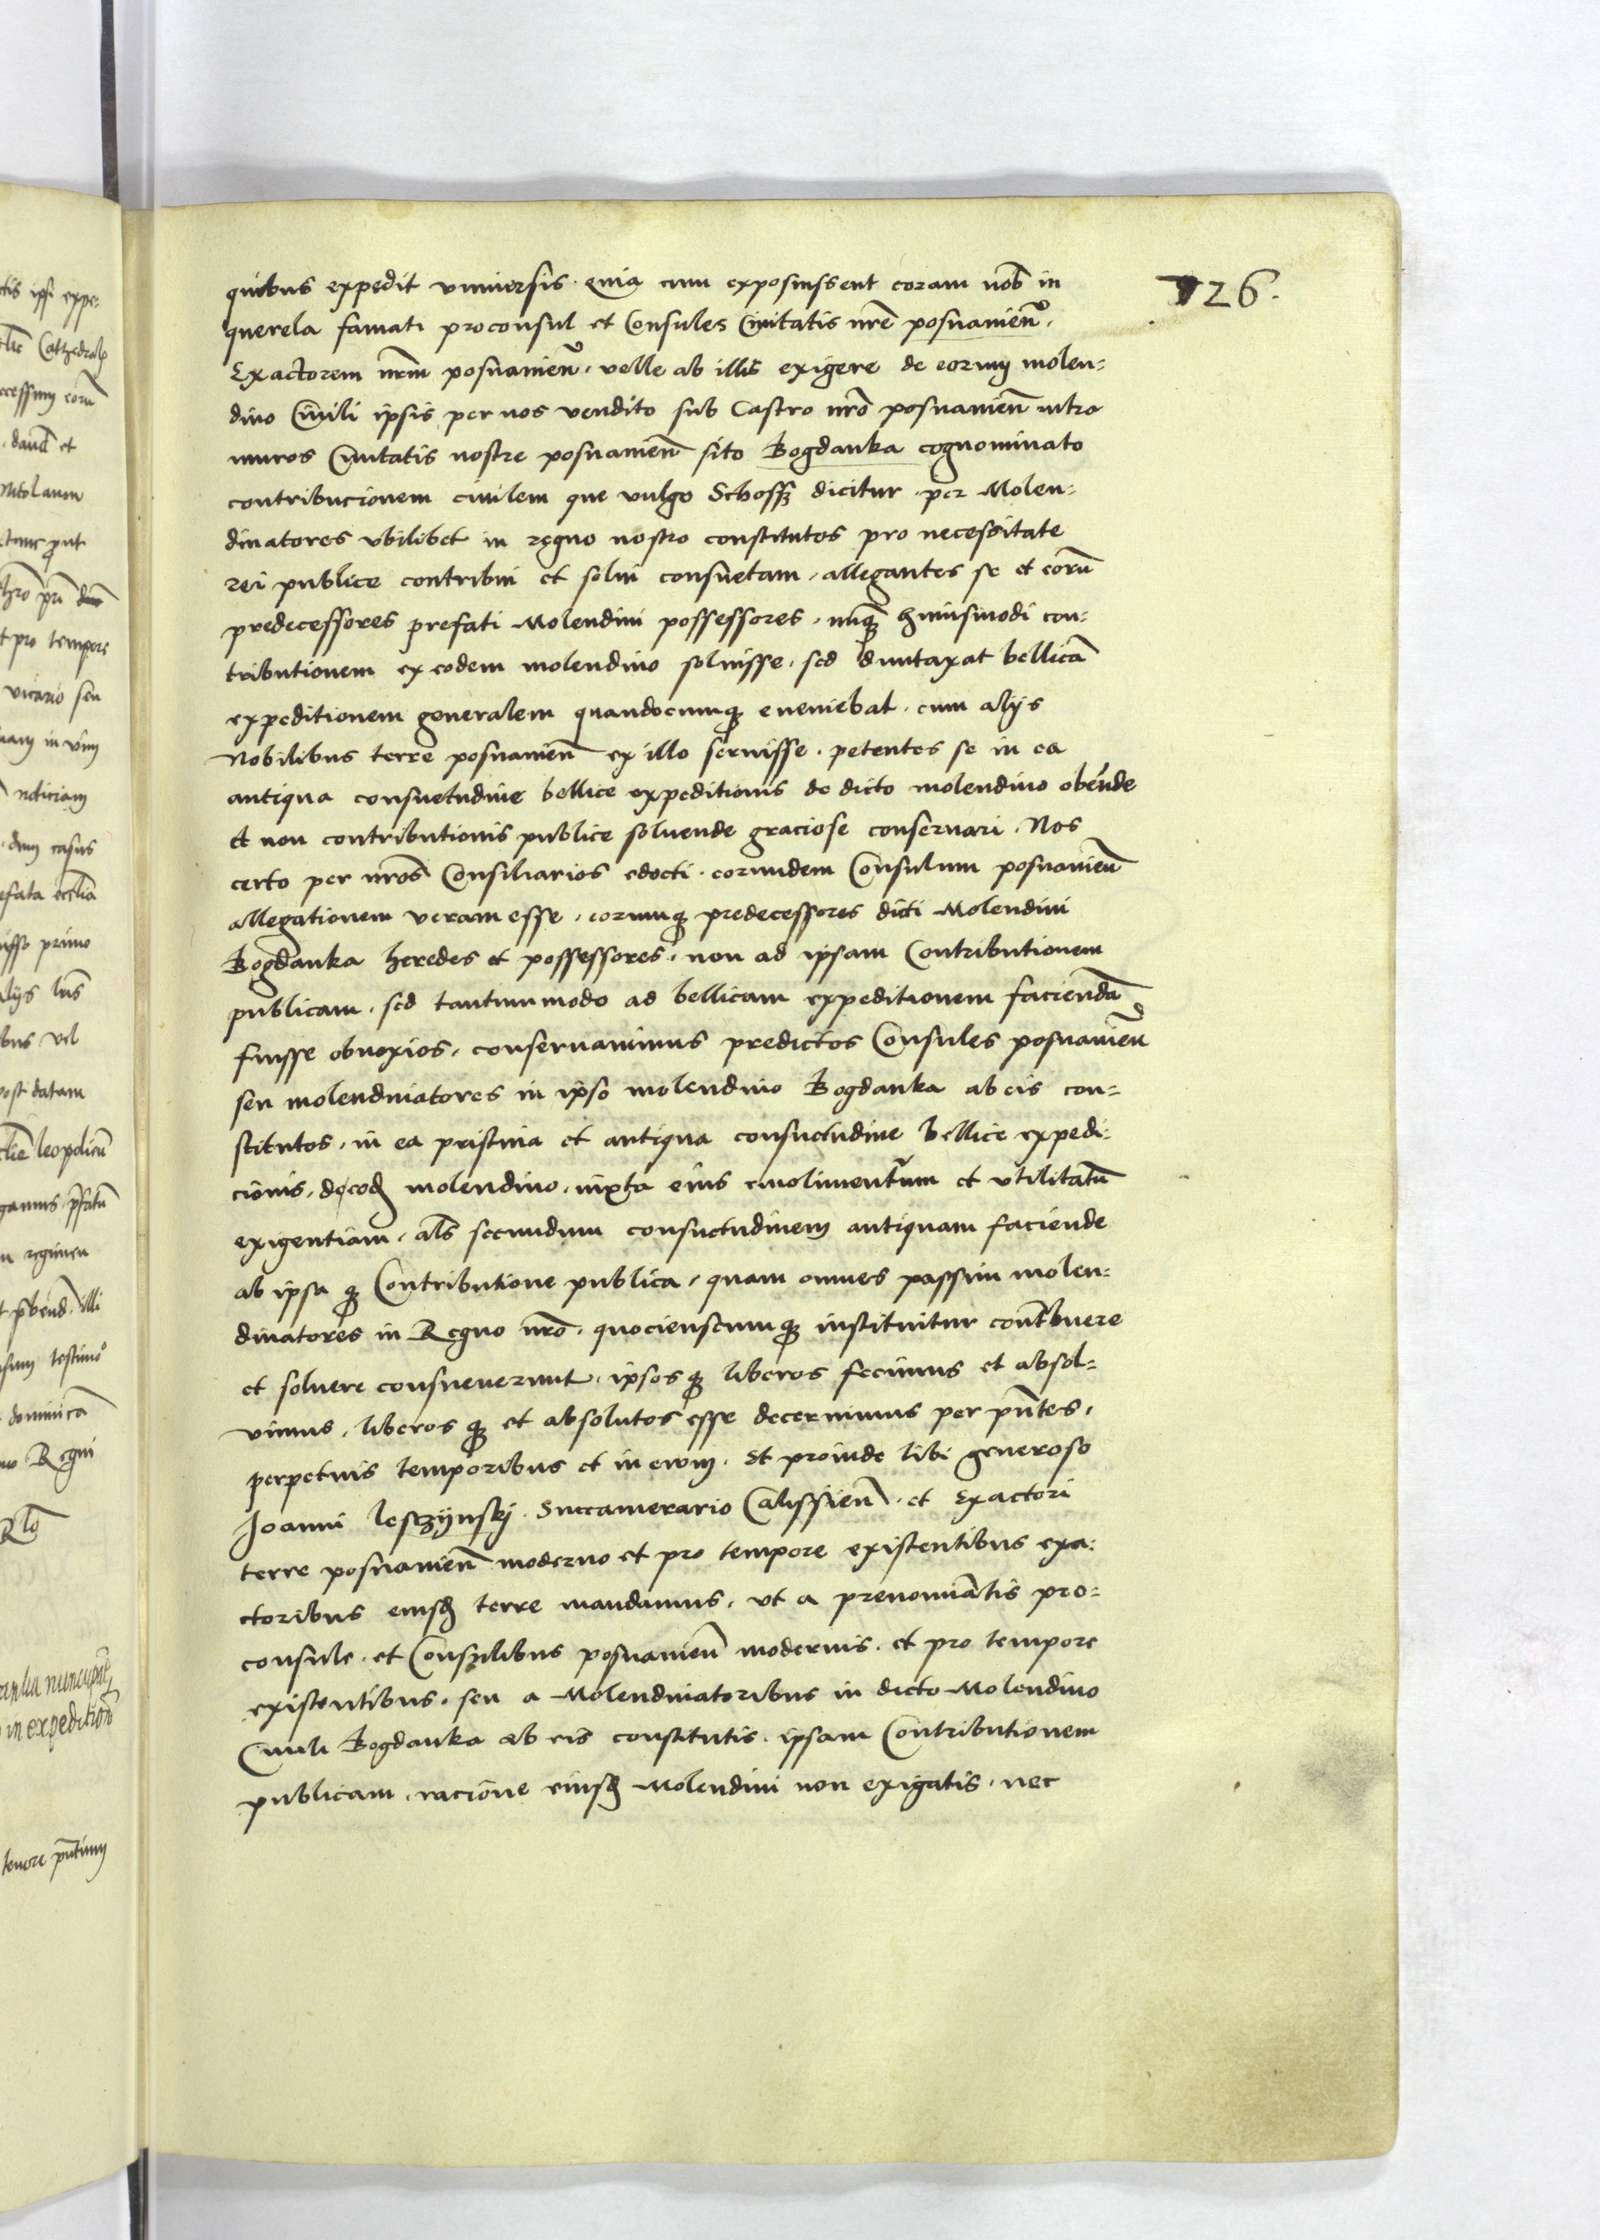 726.
quibus expedit vniuersis. quia cum exposuissent coram nob̄ in
querela famati proconsul et Consules Ciuitatis nr̄e posnanien̄.
Exactorem nr̄m posnanien̄. velle ab illis exigere de eorum molen-
dino Ciuili ipsis per nos vendito sub Castro nr̄o posnanien̄ intra
muros Ciuitatis nostre posnanien̄ sito Bogdanka cognominato
contribucionem ciuilem que vulgo Schossz dicitur per Molen-
dinatores vbilibet in regno nostro constitutos pro necessitate
rei publice contribui et solui consuetam, allegantes se et eorū
predecessores prefati Molendini possessores, nunq̨ huiusmodi con-
tributionem ex eodem molendino soluisse. sed duntaxat bellicā
expeditionem generalem quandocumq̨ eueniebat. cum alijs
Nobilibus terre posnanien̄ ex illo seruisse. petentes se in ea
antiqua consuetudine bellice expeditionis de dicto molendino obeūde
et non contributionis publice soluende graciose conseruari. Nos
certo per nr̄os Consiliarios edocti. eorundem Consulum posnanien̄
allegationem veram esse, eorumq̨ predecessores dicti Molendini
Bogdanka heredes et possessores, non ad ipsam Contributionem
publicam, sed tantummodo ad bellicam expeditionem faciendā
fuisse obnoxios, conseruauimus predictos Consules posnanien̄
seu molendinatores in ipso molendino Bogdanka ab eis con-
stitutos, in ea pristina et antiqua consuetudine bellice expedi-
cionis, de eod̄ molendino, iuxta eius emolimentum et vtilitatū
exigentiam, al̄s secundum consuetudinem antiquam faciende
ab ipsa q̨ Contributione publica, quam omnes passim molen-
dinatores in Regno nr̄o. quocienscumq̨ instituitur cont̄buere
et soluere consueuerunt, ipsos q̨ liberos fecimus et absol-
vimus, liberos q̨ et absolutos esse decernimus per pn̄tes,
perpetuis temporibus et in ewm. Et proinde tibi generoso
Joanni lesczijnskj. Succamerario Calissien̄. et Exactori
terre posnanien̄ moderno et pro tempore existentibus exa-
ctoribus eiusd̄ terre mandamus, vt a prenomi̅atis pro-
consule. et Consulibus posnanien̄ modernis. et pro tempore
existentibus. seu a Molendinatoribus in dicto Molendino
Ciuili Bogdanka ab eis constitutis. ipsam Contributionem
publicam, racione eiusd̄ Molendini non exigatis. nec